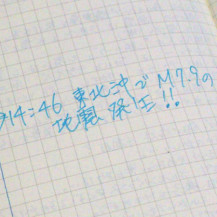 14:46 東北沖でM7.9の
地震発生!!